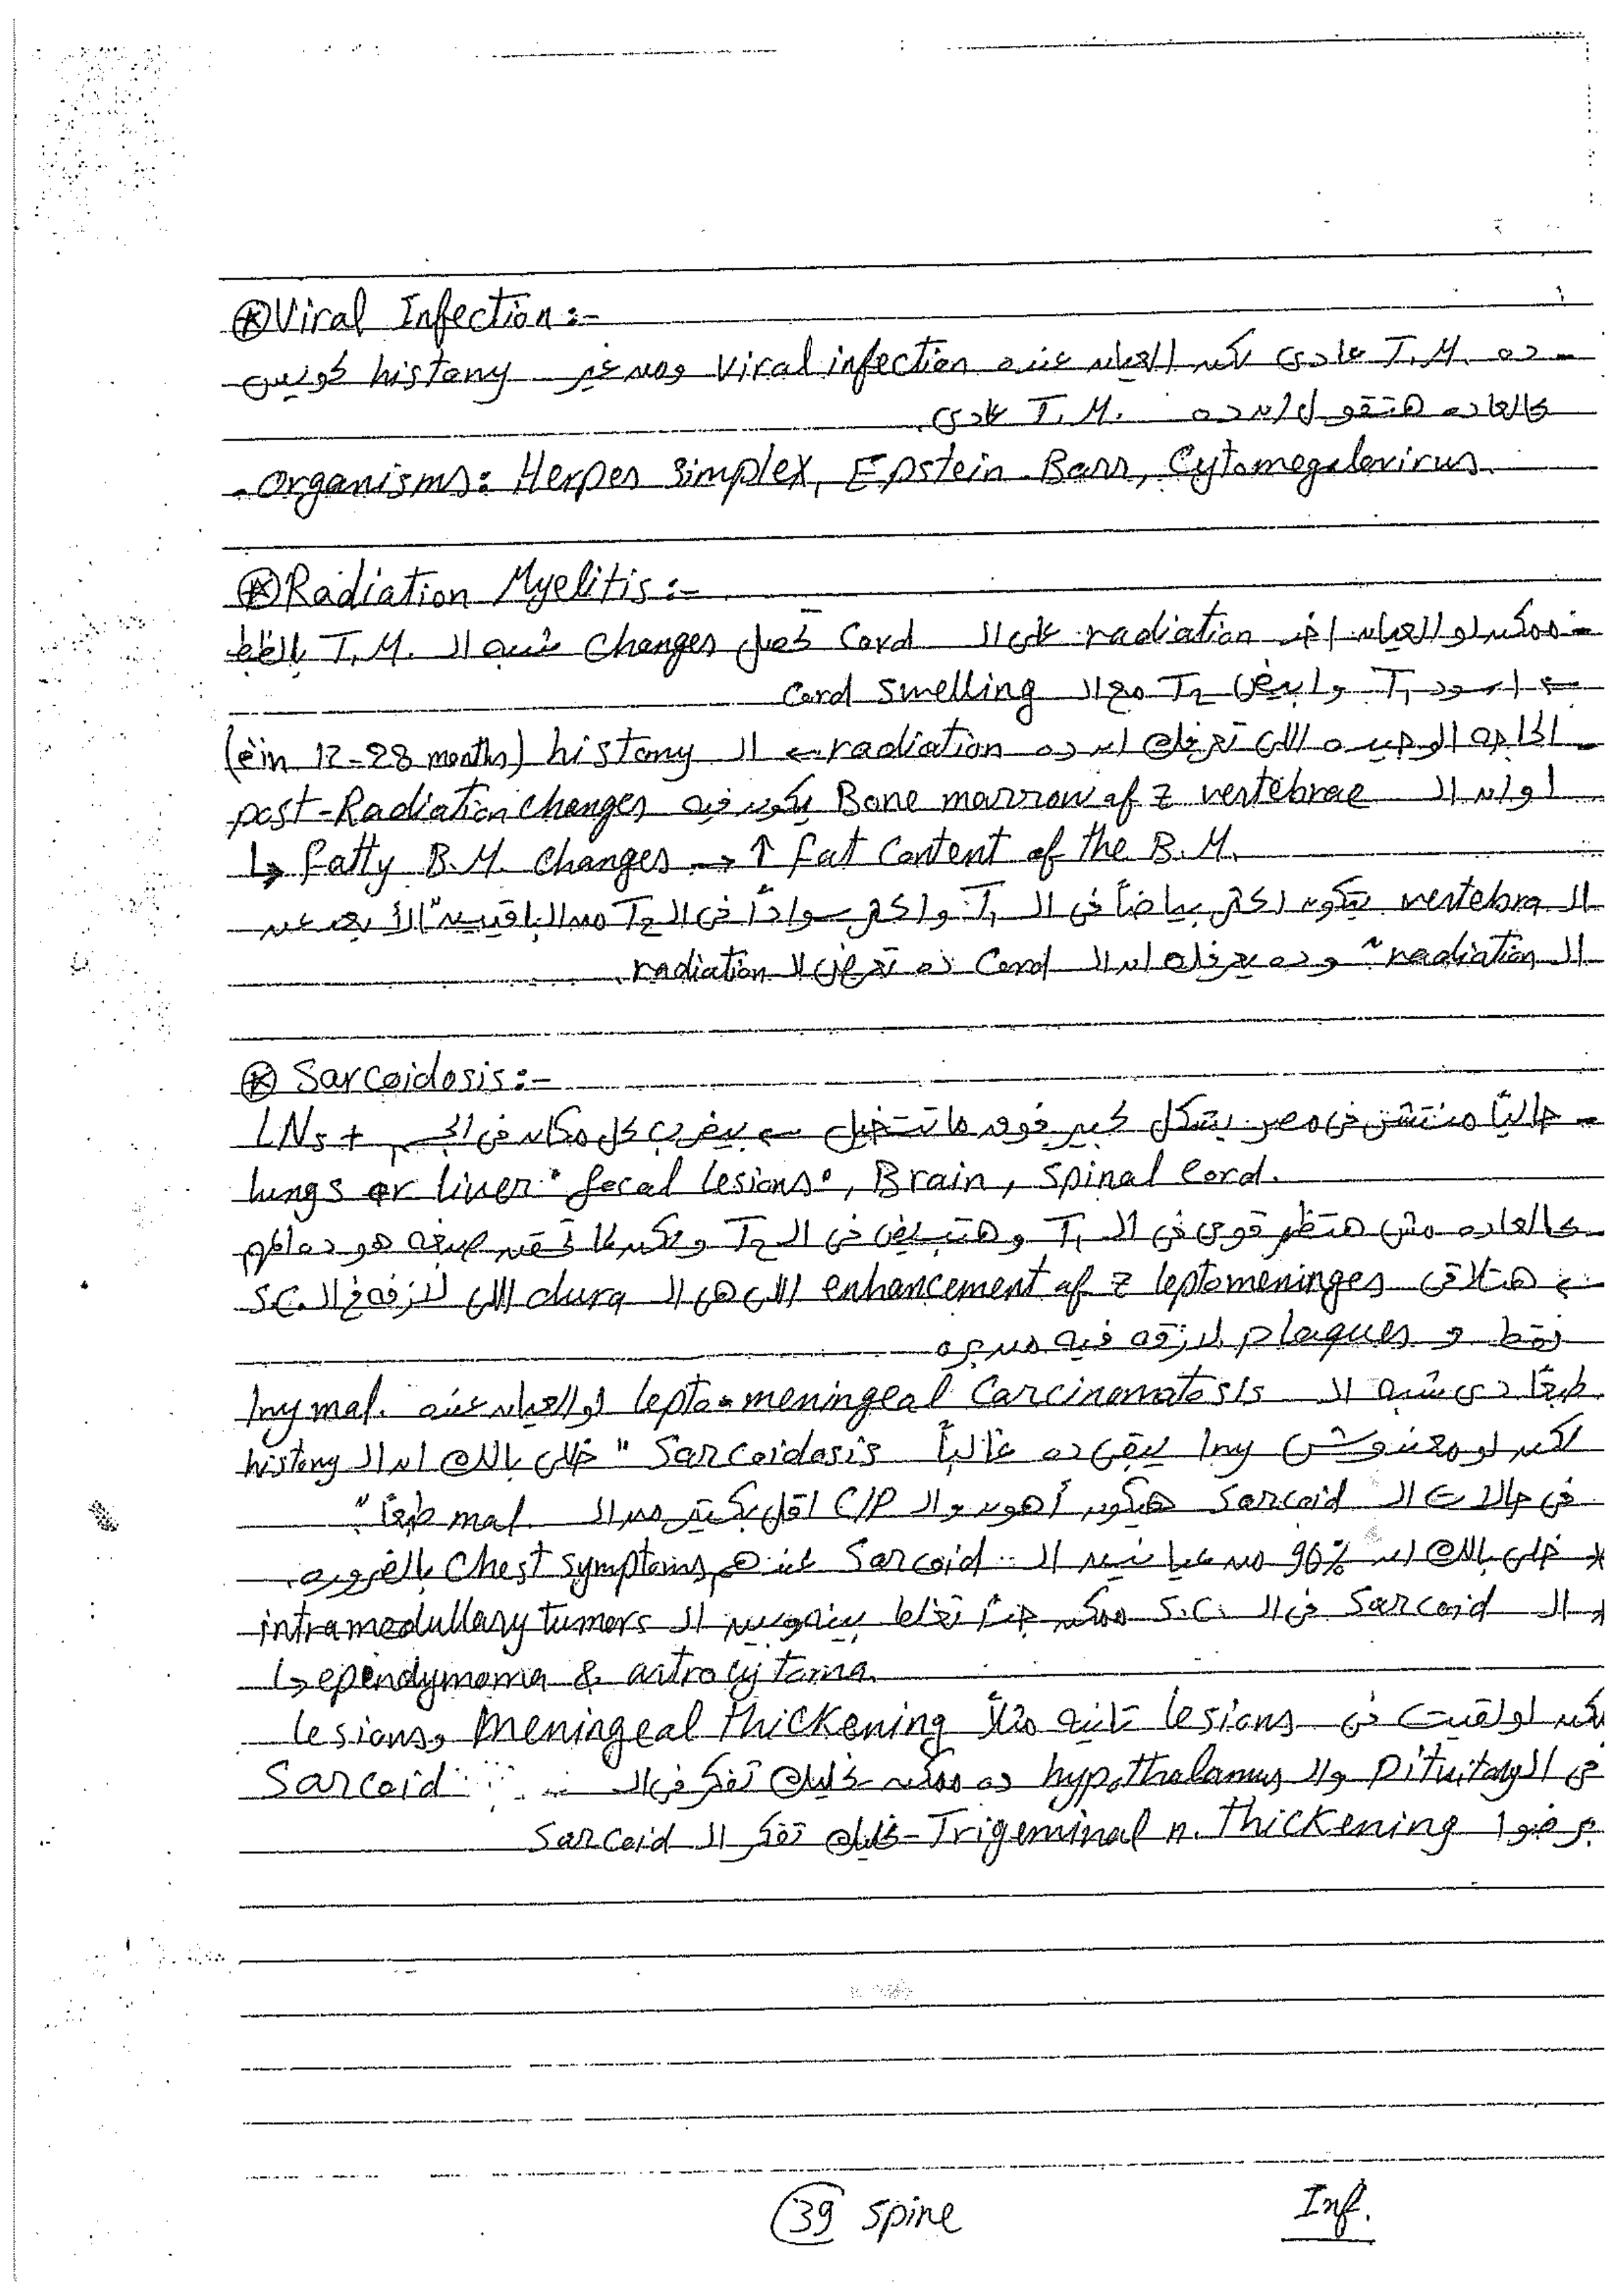 ⊛ Viral Infection:-
- ده T.M. عادى لكن العيان عنده Viral infection ومن غير history كويس
كالعاده هتقول إن ده T.M. عادى
- Organisms: Herpes Simplex, Epstein Barr, Cytomegalovirus.
⊛ Radiation Myelitis:-
- ممكن لو العيان اخد radiation على الـ Cord تحصل Changes شبه الـ T.M. بالظبط
← اسود T₁ وابيض T₂ مع الـ Cord Smelling
- الحاجه الوحيده اللى تعرفك ان ده radiation ← الـ history (ėin 12-28 months)
اوإن الـ Bone marrow of z vertebrae يكون فيه post-Radiation changes
↳ fatty B.M. Changes → ↑ fat Content of the B.M.
الـ vertebra تكون اكتر بياضاً فى الـ T₁ واكتر سواداً فى الـ T₂ من الباقيين "الأبعد عن
الـ radiation" وده يعرفك ان الـ Cord ده تعرض لـ radiation
⊛ Sarcoidosis:-
- حالياً منتشر فى مصر بشكل كبير فوق ما تتخيل ← بيضرب كل مكان فى الجسم LNs +
lungs or liver "focal lesions", Brain, Spinal Cord.
- كالعاده مش هتظهر قوى فى الـ T₁ وهتبيض فى الـ T₂ ولكن لما تحقن صبغه هو ده المهم
← هتلاقى enhancement of z leptomeninges اللى هى الـ dura اللى لازقه فى الـ S.C.
نقط و plaques لازقه فيه من بره
طبعاً دى شبه الـ lepto-meningeal Carcinomatosis لو العيان عنده Iry mal.
لكن لو معندوش Iry يبقى ده غالباً Sarcoidosis "خلى بالك ان الـ history
فى حالات الـ Sarcoid هيكون أهون والـ C/P اقل بكتير من الـ mal. طبعاً"
* خلى بالك ان 90% من عيانين الـ Sarcoid عندهم Chest symptoms بالضروره.
* الـ Sarcoid فى الـ S.C. ممكن جداً تغلط بينه وبين الـ intramedullary tumors
↳ ependymoma & astrocytoma.
لكن لو لقيت فى lesions تانيه مثلاً Meningeal thickening و lesions
فى الـ Pituitary والـ hypothalamus ده ممكن يخليك تفكر فى الـ Sarcoid
برضوا Trigeminal n. thickening - يخليك تفكر الـ Sarcoid
39 spine
Inf.